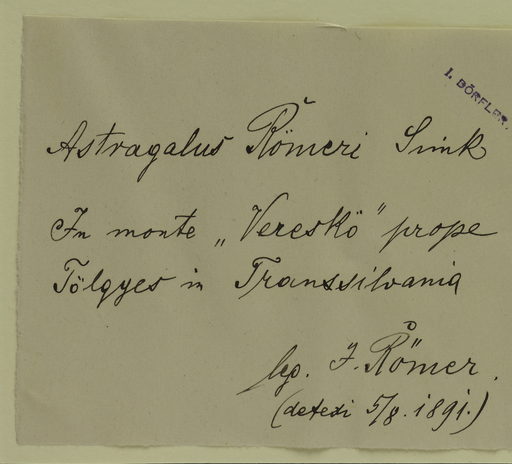 I. DÖRFLER.
Astragalus Römeri Simk
In monte „Vereskö” prope
Tölgyes in Transsilvania
leg. J. Römer.
(detexi 5/8. 1891.)